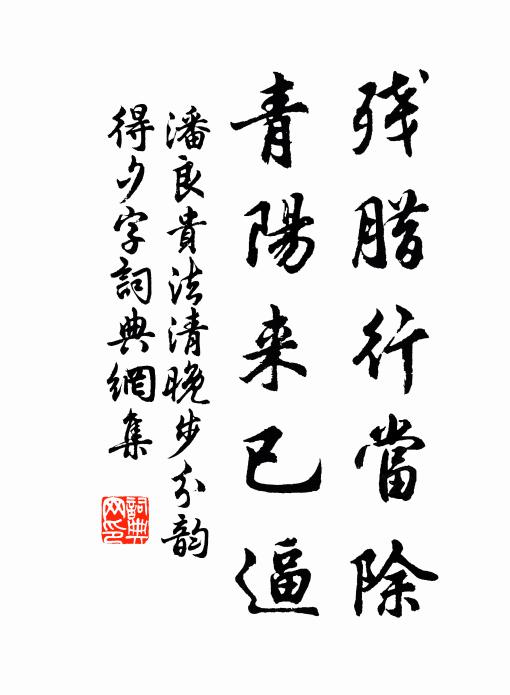 残腊行當除
青陽来已逼
潘良貴法清晚步分韵
得夕字詞典網集
詞典
网印